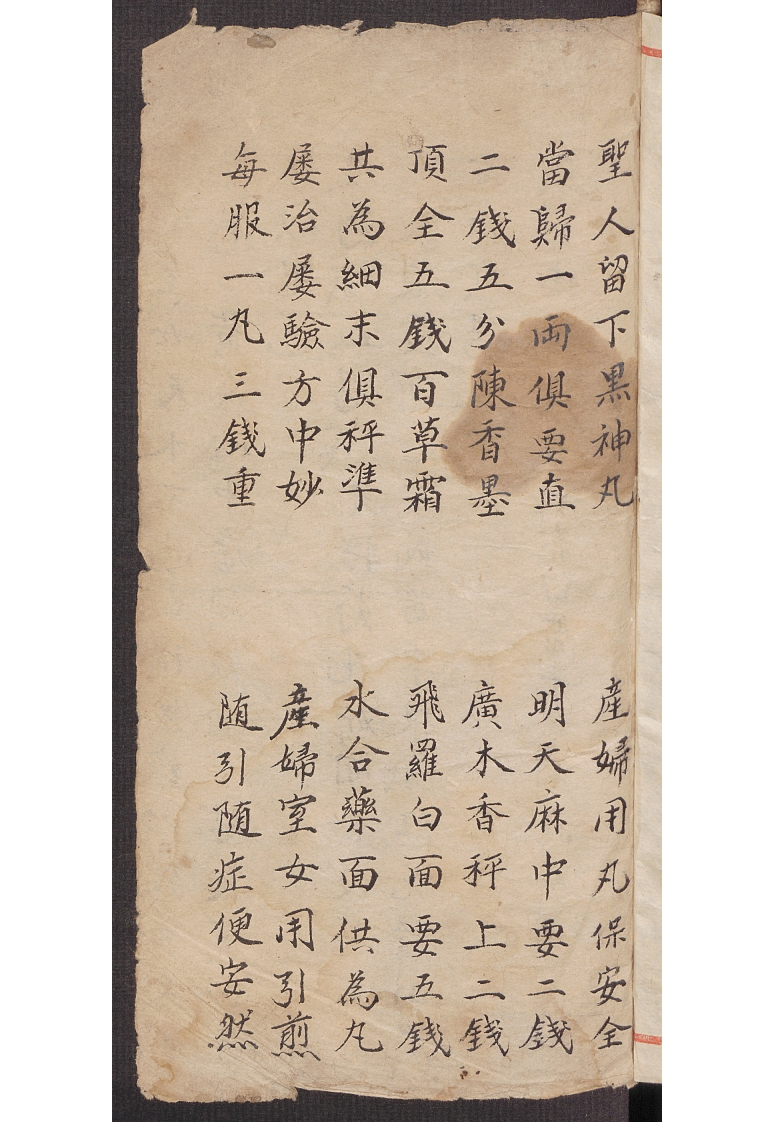 聖人留下黑神丸　産婦用丸保安全
當歸一両俱要直　明天麻中要二錢
二錢五分陳香墨　廣木香秤上二錢
頂全五錢百草霜　飛羅白面要五錢
共為細末俱秤準　水合藥面供為丸
屡治屡驗方中妙　産婦室女用引煎
每服一丸三錢重　随引随症便安然